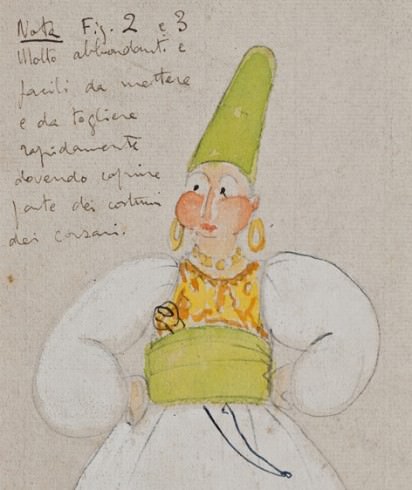 Nota Fig. 2 e 3
Molto abbondanti e
facili da mettere
e da togliere
rapidamente
dovendo coprire
parte dei costumi
dei corsari.